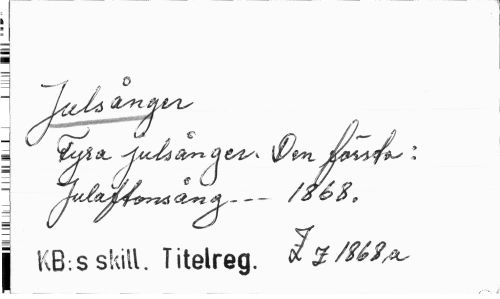 Julsånger
Fyra julsånger. Den första:
Julaftonsång --- 1868.
KB:s skill. Titelreg.
1868,a